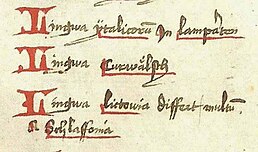 Lingwa ytalicorum In lampärten
Lingwa Curwälsch
Lingwa lietowia differt multum
a Schlaffonia